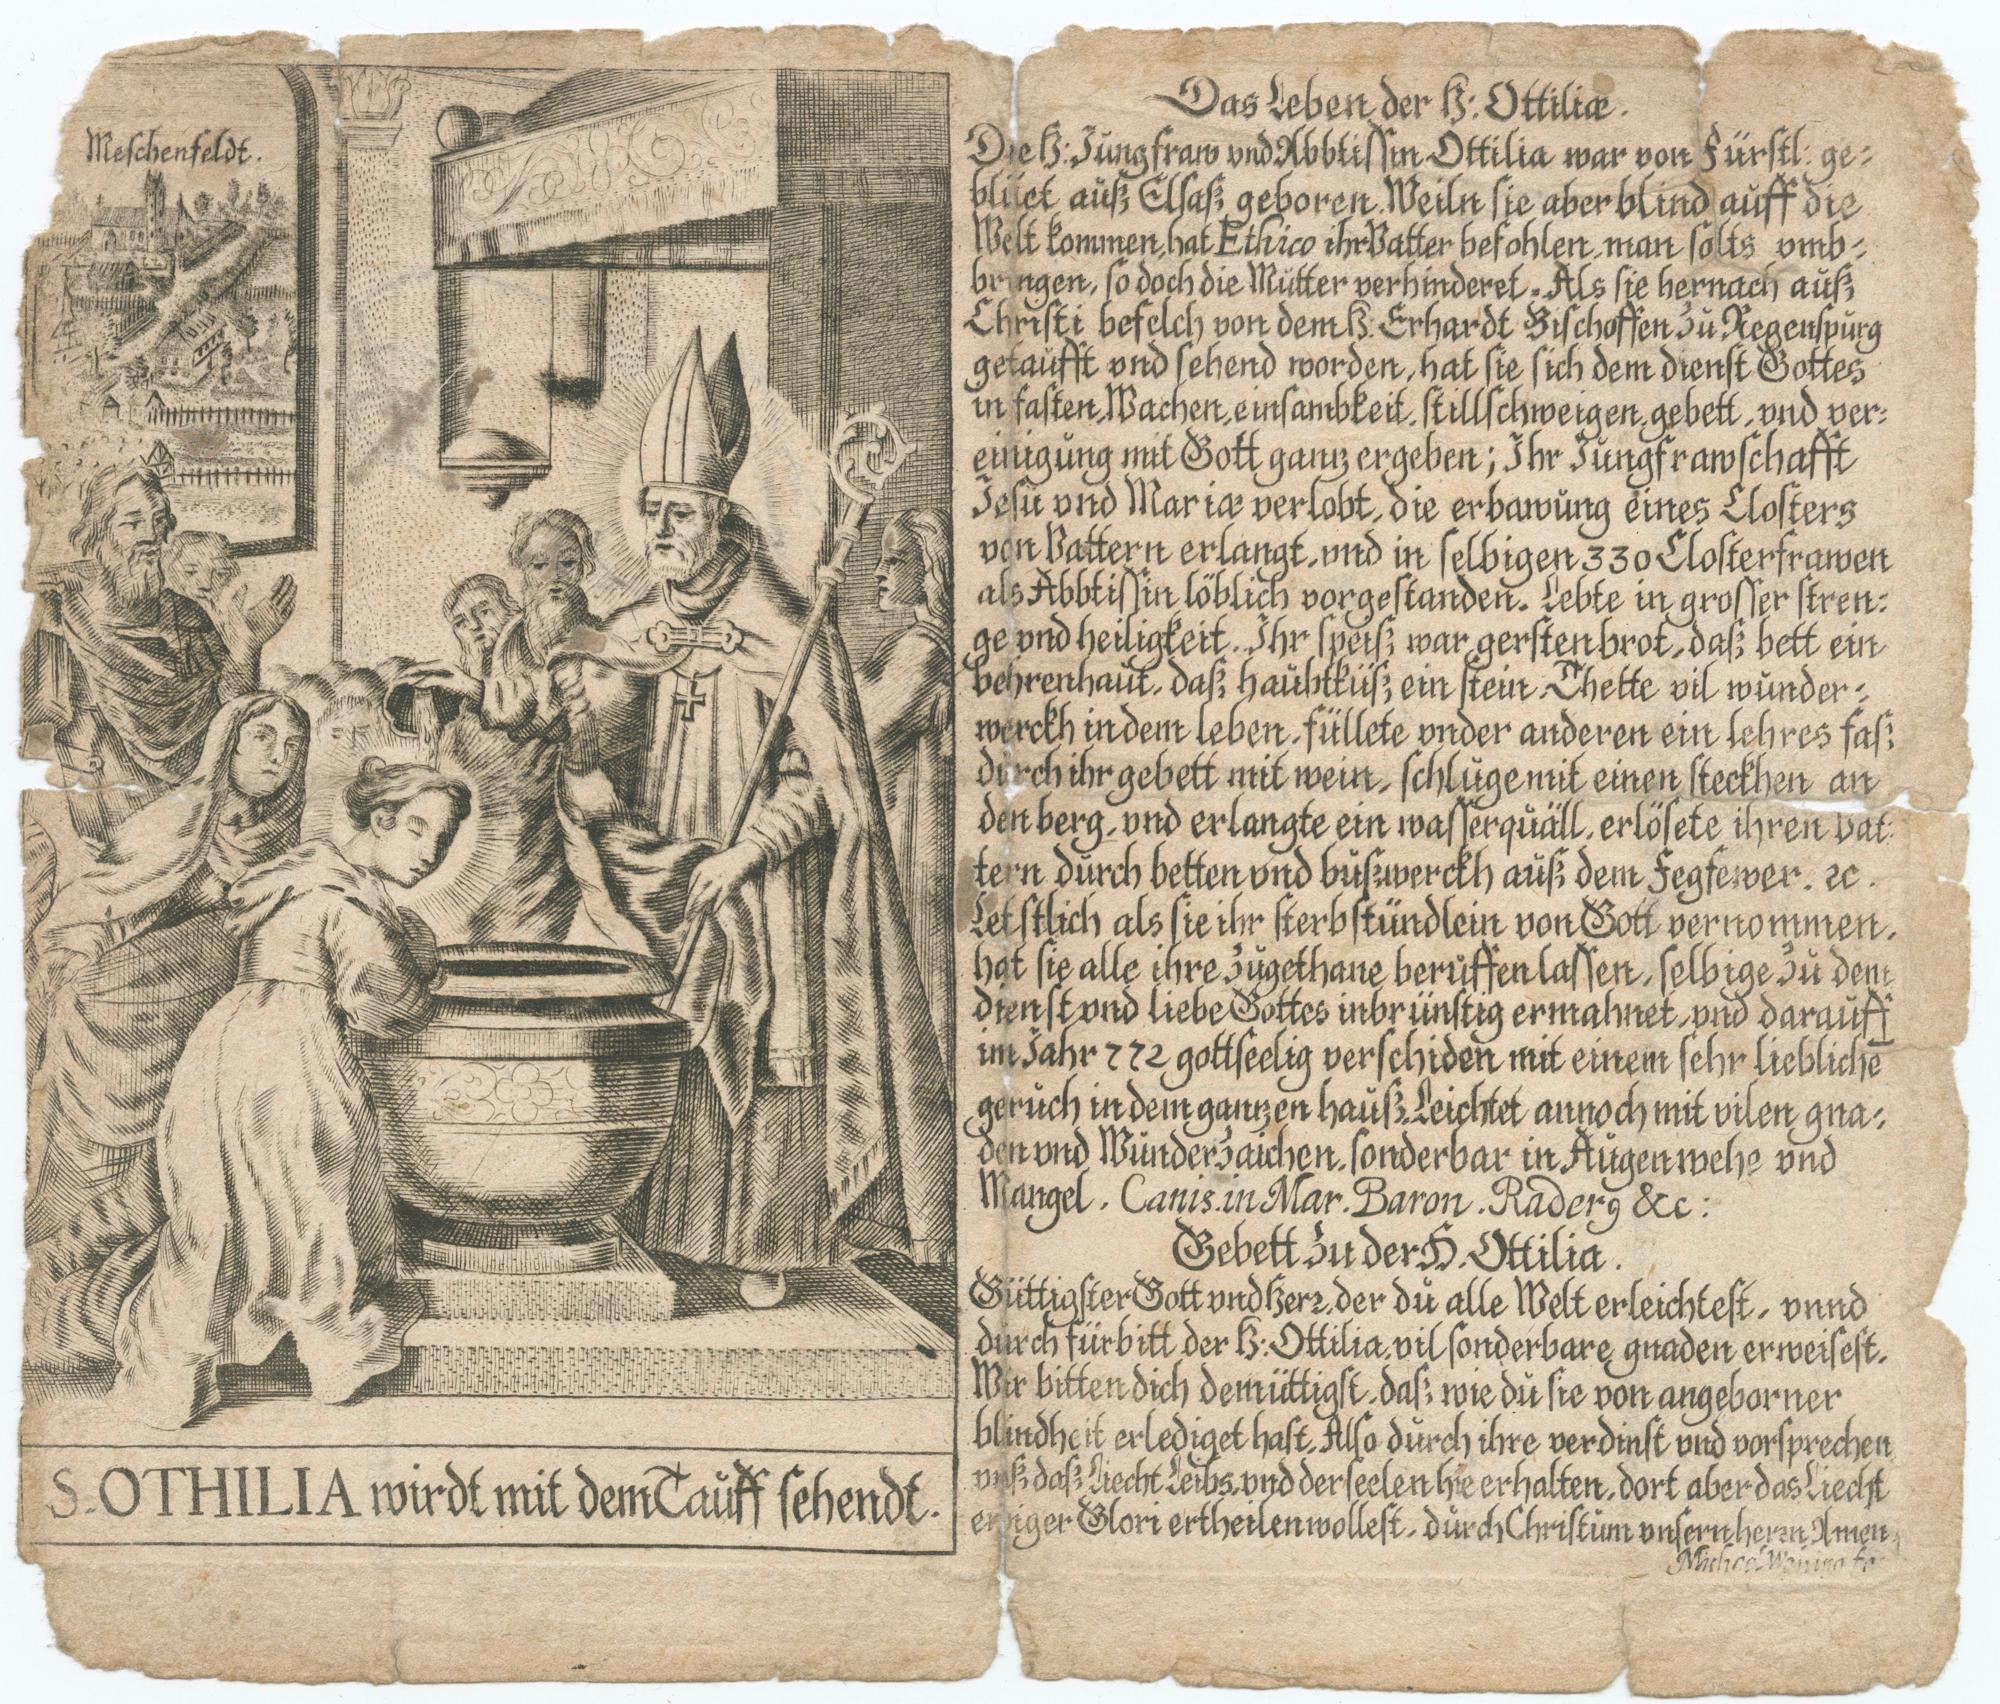 Meschenfeldt.
S. OTHILIA wirdt mit dem Tauff sehendt.
Das Leben der H: Ottiliæ.
Die H: Jungfraw vnd Abbtissin Ottilia war von Fürstl: ge=
blüet auß Elsaß geboren. Weiln sie aber blind auff die
Welt kommen, hat Ethico ihr Vatter befohlen, man solts vmb=
bringen, so doch die Mutter verhinderet. Als sie hernach auß
Christi befelch von dem H: Erhardt Bischoffen zu Regenspurg
getaufft vnd sehend worden, hat sie sich dem dienst Gottes
in fasten, Wachen, einsambkeit, stillschweigen, gebett, vnd ver=
einigung mit Gott gantz ergeben; Ihr Jungfrawschafft
Jesu vnd Mariæ verlobt, die erbawung eines Closters
von Vattern erlangt, vnd in selbigen 330 Closterfrawen
als Abbtissin löblich vorgestanden. Lebte in grosser stren=
ge vnd heiligkeit. Ihr speiß war gerstenbrot, daß bett ein
behrenhaut, daß haubtküß ein stein. Thette vil wunder=
werckh in dem leben, füllete vnder anderen ein lehres faß
durch ihr gebett mit wein, schluge mit einen steckhen an
den berg, vnd erlangte ein wasserquäll, erlösete ihren vat:
tern durch betten vnd bußwerckh auß dem Fegfewer. ꝛc.
Letstlich als sie ihr sterbstündlein von Gott vernommen,
hat sie alle ihre zugethane beruffen lassen, selbige zu dem
dienst vnd liebe Gottes inbrünstig ermahnet, vnd darauff
im Jahr 772 gottseelig verschiden mit einem sehr liebliche
geruch in dem gantzen hauß. Leichtet annoch mit vilen gna=
den vnd Wunderzaichen, sonderbar in Augenwehe vnd
Mangel. Canis. in Mar. Baron. Raderg &c:
Gebett zu der H. Ottilia.
Güttigster Gott vnd Herr, der du alle Welt erleichtest, vnnd
durch fürbitt der H: Ottilia, vil sonderbare gnaden erweisest.
Wir bitten dich demüttigst, daß wie du sie von angeborner
blindheit erlediget hast, Also durch ihre verdinst vnd vorsprechen
vnß daß Liecht Leibs, vnd der seelen hie erhalten, dort aber das Liecht
ewiger Glori ertheilen wollest. durch Christum vnsern herrn Amen.
Michael Wening